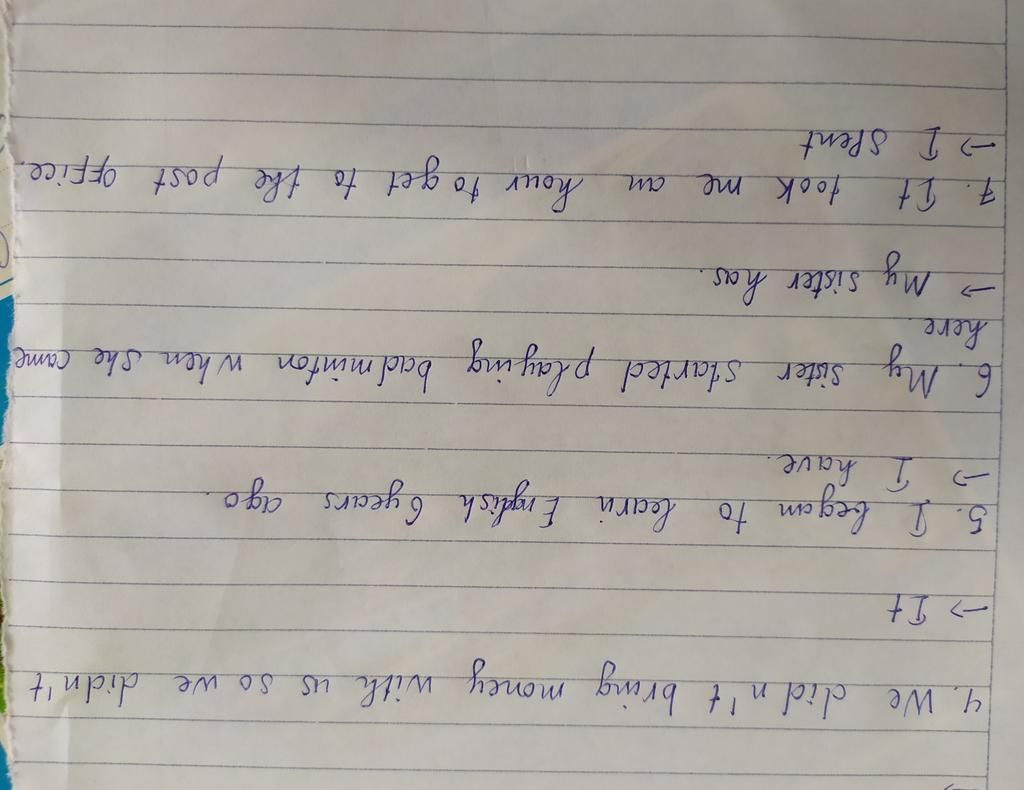 4. We didn't bring money with us so we didn't
→ It
5. I began to learn English 6 years ago.
→ I have.
6. My sister started playing badminton when she came
here.
→ My sister has.
7. It took me an hour to get to the post office.
→ I spent